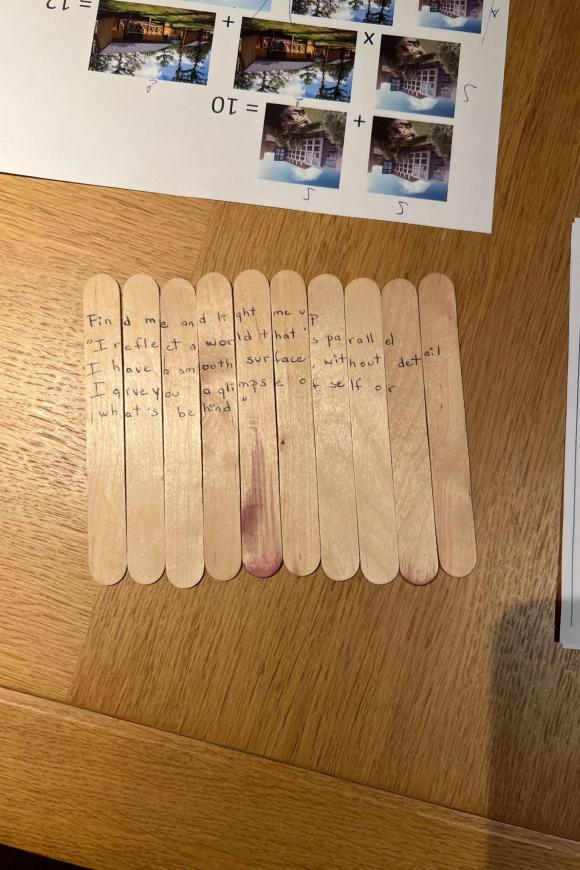 = 12
+
x
= 10
+
5
5
5
Find me and light me up.
"I reflect a world that's parallel
I have a smooth surface, without detail
I give you a glimpse of self or
what's behind"